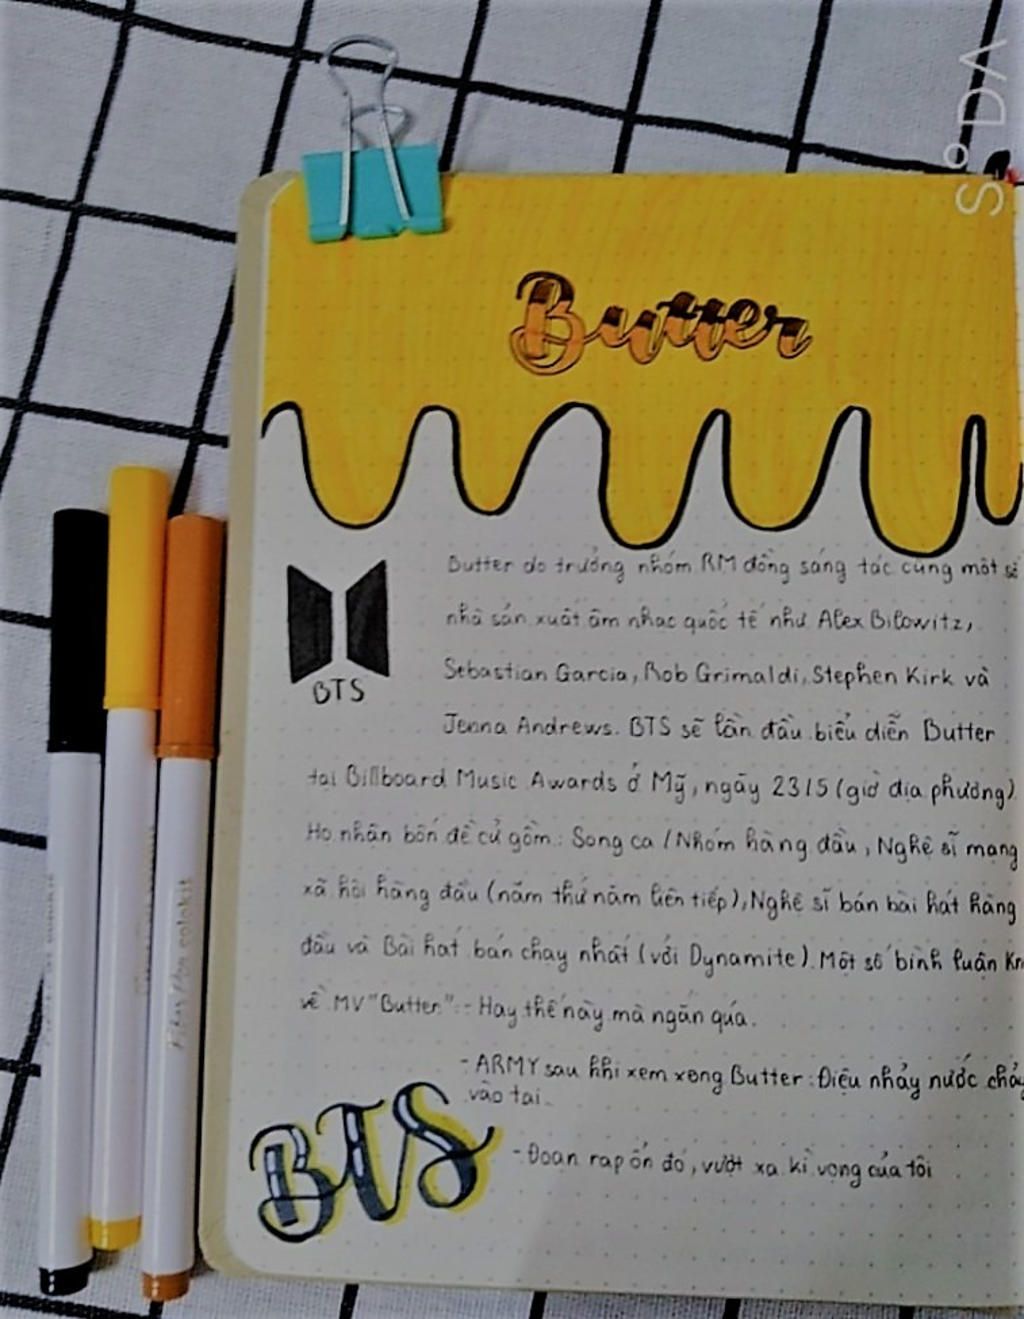 SODA
Butter
Butter do trưởng nhóm RM đồng sáng tác cùng một số
nhà sản xuất âm nhạc quốc tế như Alex Bilowitz,
Sebastian Garcia, Rob Grimaldi, Stephen Kirk và
BTS
Jenna Andrews. BTS sẽ lần đầu biểu diễn Butter
tại Billboard Music Awards ở Mỹ, ngày 23/5 (giờ địa phương).
Họ nhận bốn đề cử gồm: Song ca / Nhóm hàng đầu, Nghệ sĩ mạng
xã hội hàng đầu (năm thứ năm liên tiếp), Nghệ sĩ bán bài hát hàng
đầu và Bài hát bán chạy nhất (với Dynamite). Một số bình luận
về MV "Butter": - Hay thế này mà ngắn quá.
- ARMY sau khi xem xong Butter: Điệu nhảy nước chảy
vào tai.
- Đoạn rap ổn đó, vượt xa kì vọng của tôi
BTS